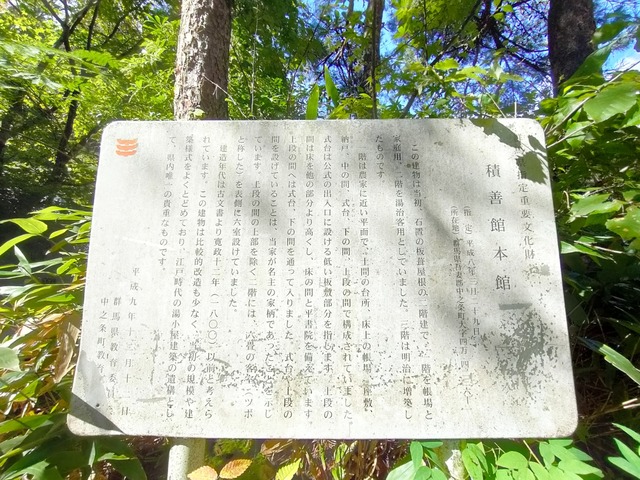 指定重要文化財
積善館本館
この建物は当初、石置の板葺屋根の二階建で、一階を帳場と
家庭用、二階を湯治客用としていました。三階は明治に増築し
たものです。
一階は農家に近い平面で、土間の台所、床上の帳場、座敷、
納戸、中の間、式台、下の間、上段の間で構成されていました。
式台は公式の出入口に設ける低い板敷部分を指します。上段の
間は床を他の部分より高くし、床の間と平書院を備えています。
上段の間へは式台、下の間を通って入りました。式台や上段の
間を設けていることは、当家が名主の家柄であったことを示し
ています。上段の間の上部を除く二階には、八畳の客室(ツボ
と称した)を表側に六室設けていました。
建造年代は古文書より寛政十二年(一八〇〇)以前と考えら
れています。この建物は比較的改造も少なく、当初の規模や建
築様式をよくとどめており、江戸時代の湯小屋建築の遺構とし
て、県内唯一の貴重なものです。
平成九年十二月十日
群馬県教育委
中之条町教育